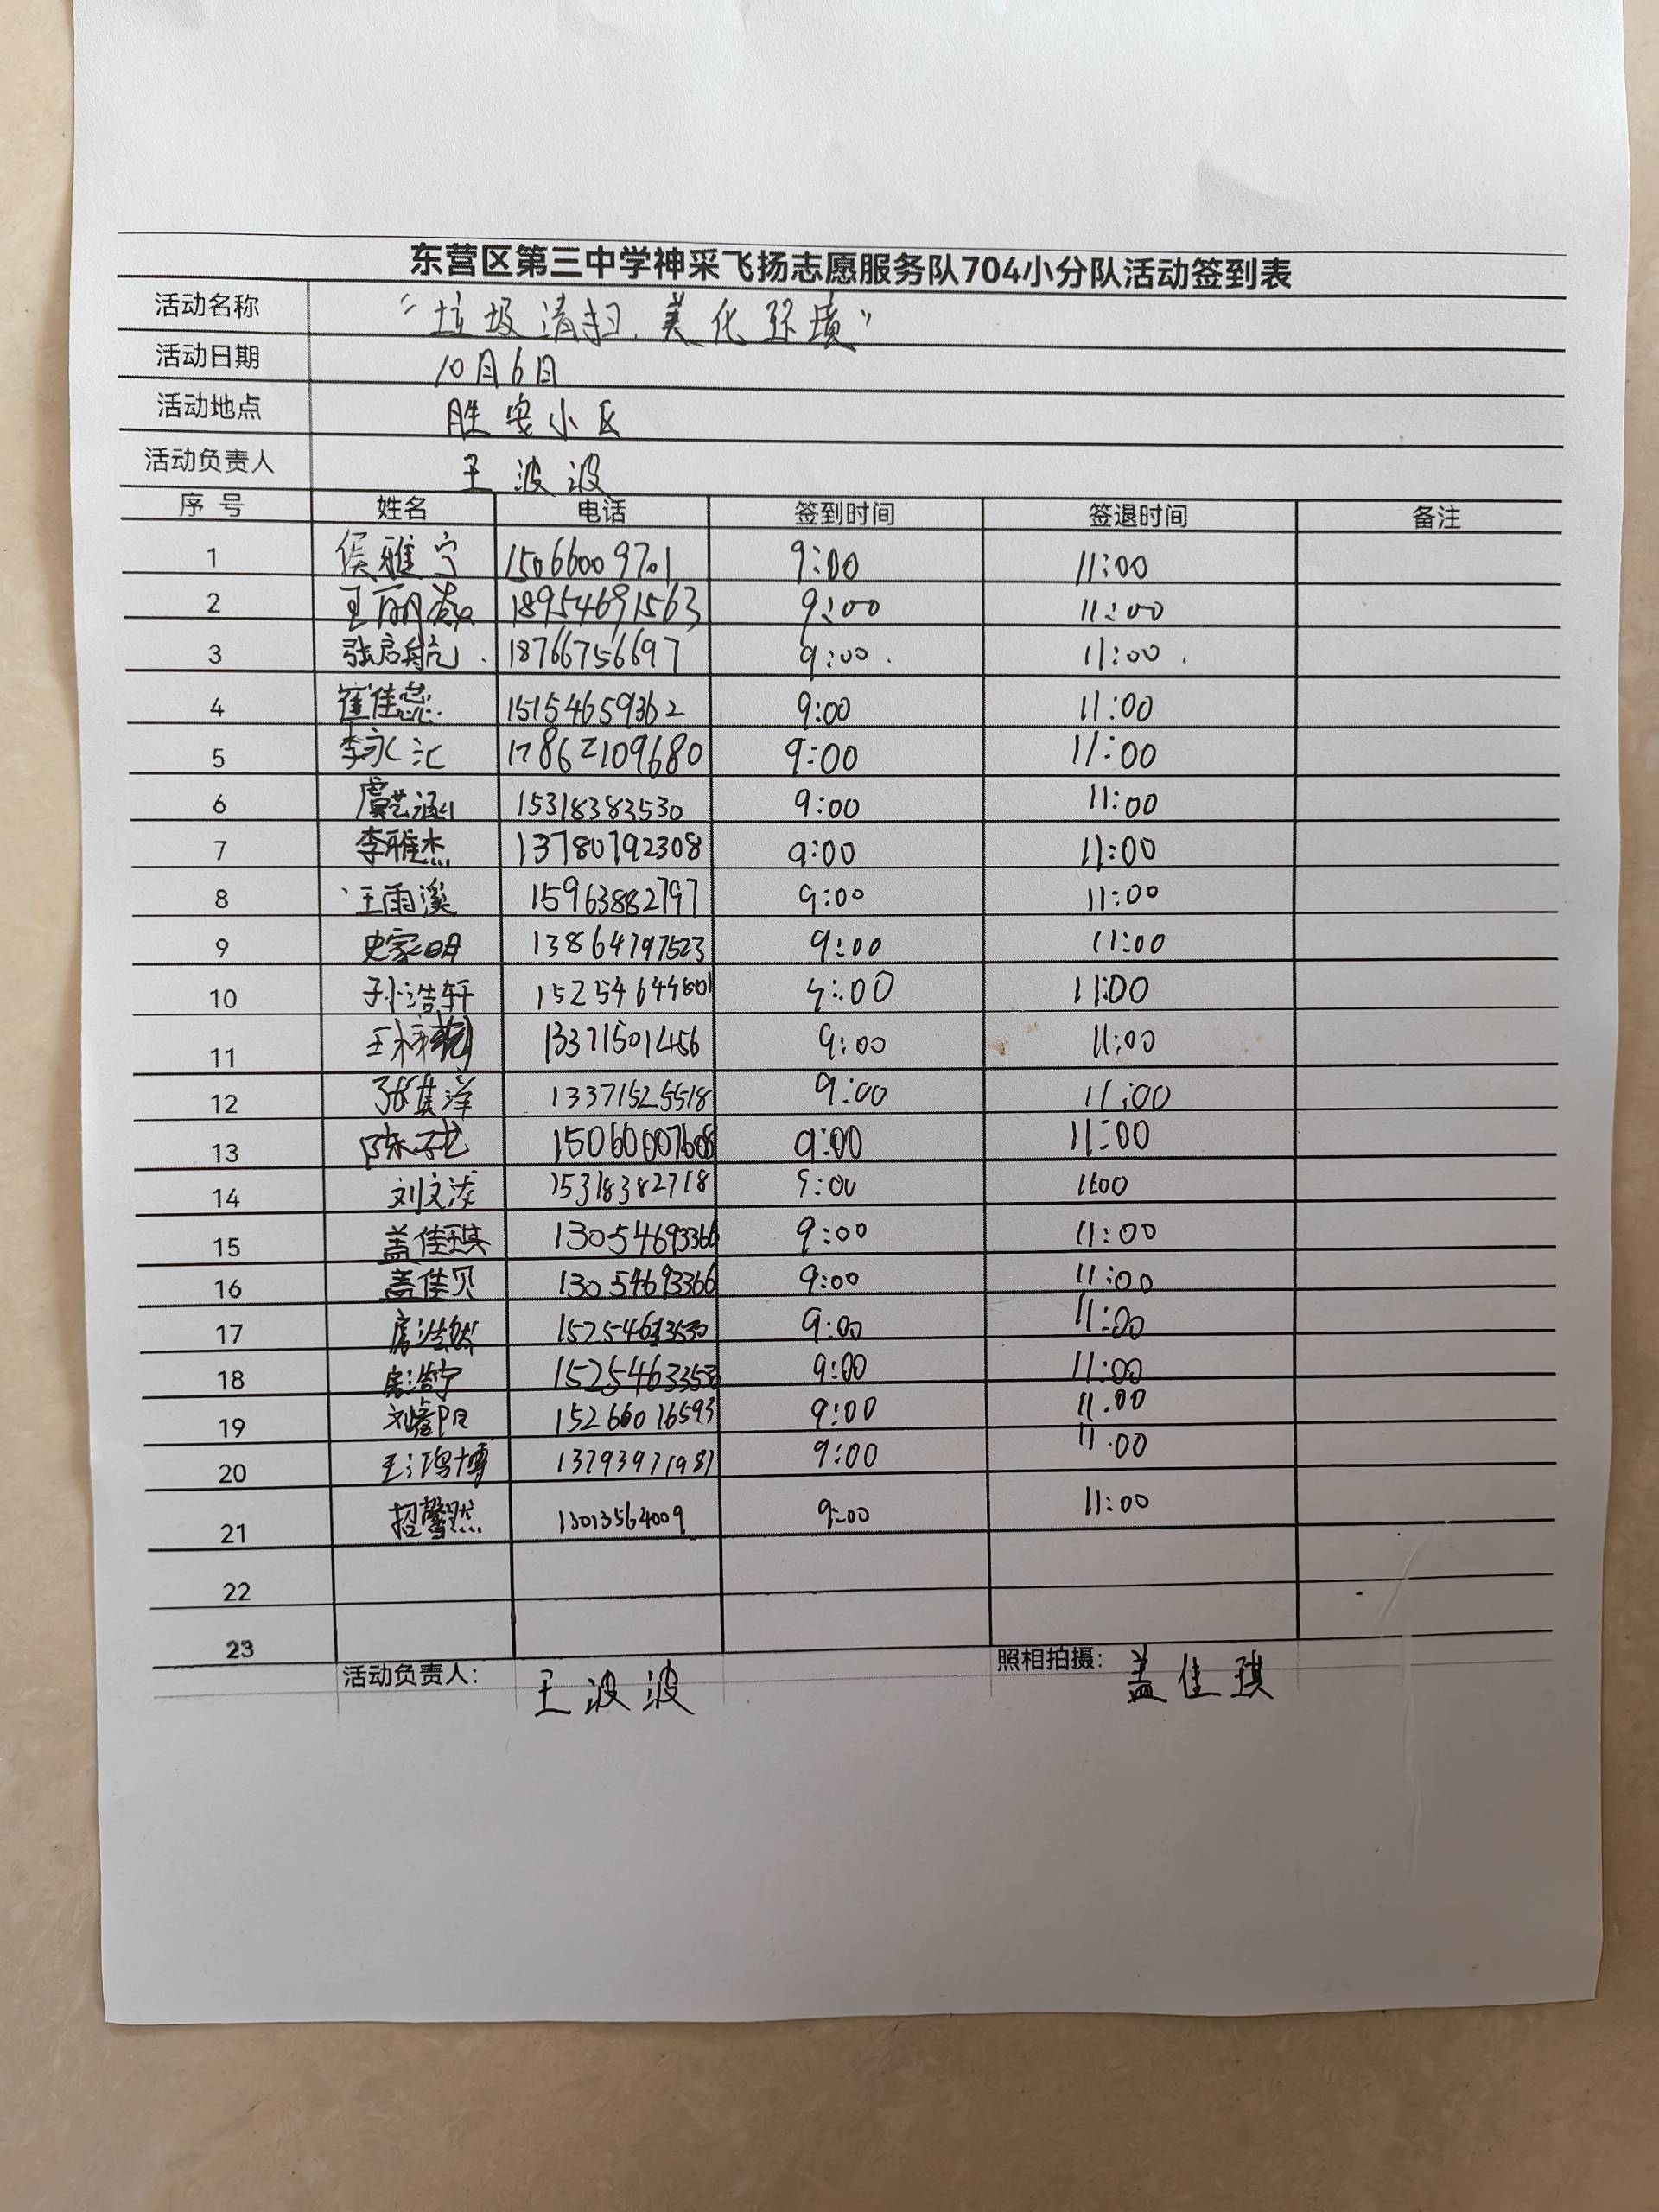 东营区第三中学神采飞扬志愿服务队704小分队活动签到表
活动名称 “垃圾清扫,美化环境”
活动日期 10月6日
活动地点 胜安小区
活动负责人 王波波
序号 姓名 电话 签到时间 签退时间 备注
1 侯雅宁 15066009701 9:00 11:00
2 王丽 18954691563 9:00 11:00
3 张启航 18766756697 9:00 11:00
4 崔佳蕊 15154659362 9:00 11:00
5 李永汇 17862109680 9:00 11:00
6 虞艺涵 15318383530 9:00 11:00
7 李雅杰 13780792308 9:00 11:00
8 王雨溪 15963882797 9:00 11:00
9 史家明 13864797523 9:00 11:00
10 孙浩轩 9:00 11:00
11 王 13371501456 9:00 11:00
12 张其洋 13371525518 9:00 11:00
13 陈子龙 15060007608 9:00 11:00
14 刘文 15318382718 9:00 11:00
15 盖佳琪 13054693366 9:00 11:00
16 盖佳贝 13054693366 9:00 11:00
17 房浩然 9:00 11:00
18 房浩宁 15254633530 9:00 11:00
19 刘 阳 15266016593 9:00 11.00
20 王鸿博 13793971981 9:00 11.00
21 招馨然 13013564009 9:00 11:00
22
23
活动负责人: 王波波 照相拍摄: 盖佳琪